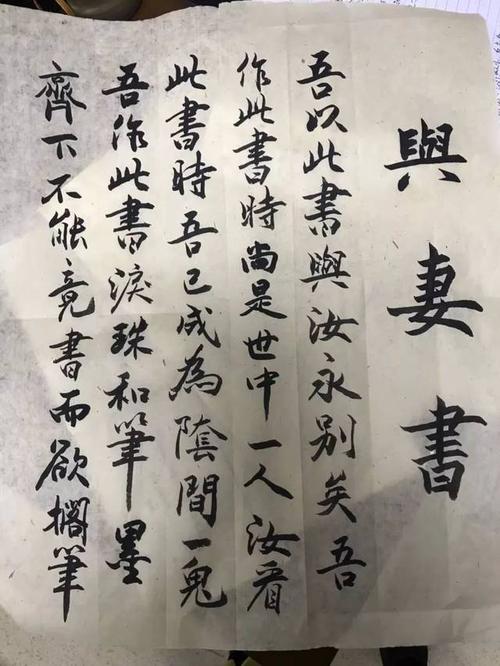 與妻書
吾以此書與汝永別矣吾
作此書時尚是世中一人汝看
此書時吾已成為陰間一鬼
吾作此書淚珠和筆墨
齊下不能竟書而欲擱筆